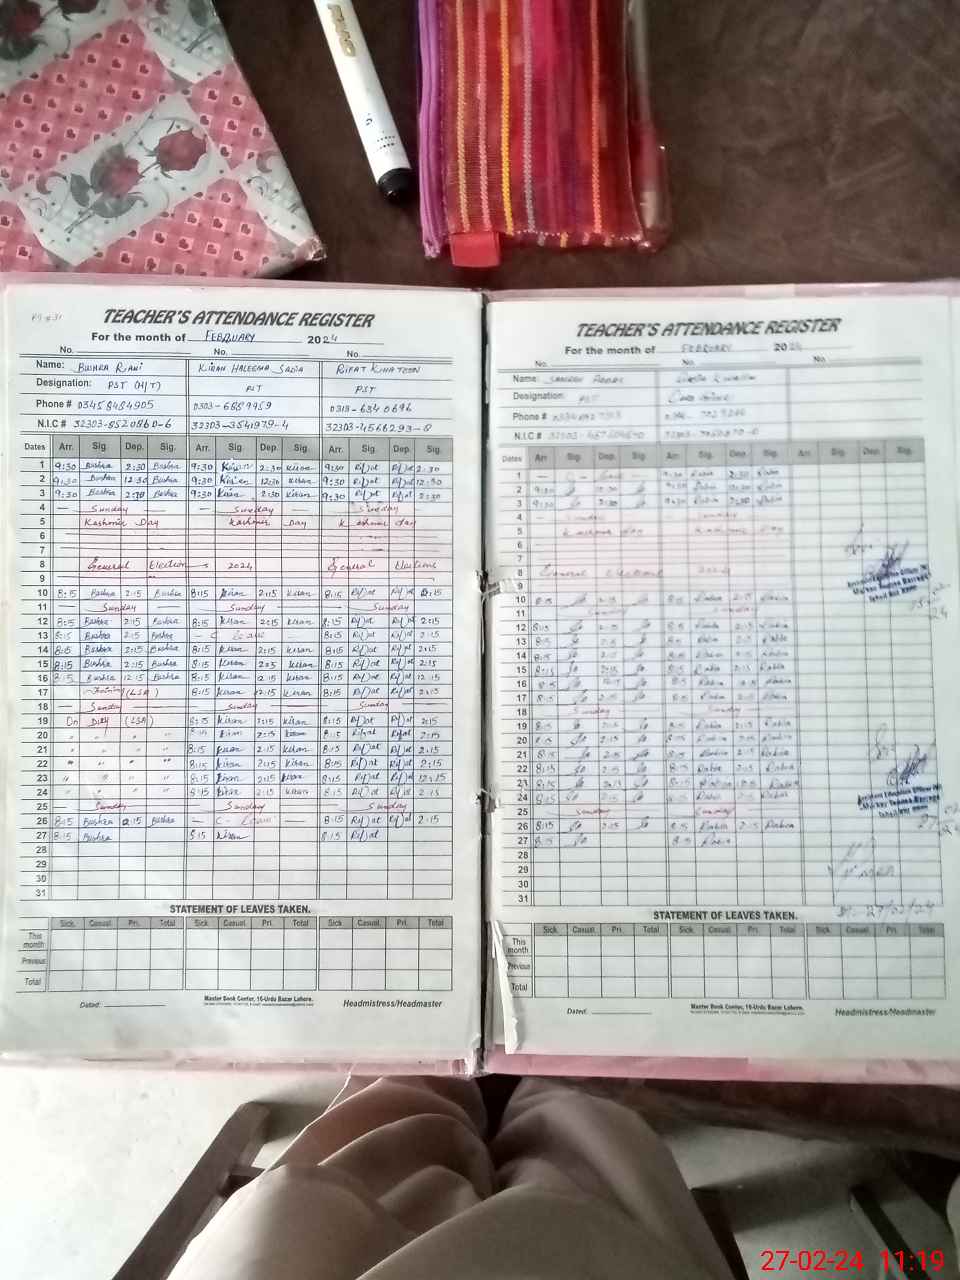 TEACHER'S ATTENDANCE REGISTER
For the month of FEBRUARY 2024
No. No. No.
Name: BUSHRA RANI KIRAN HALEEMA SADIA RIFAT KHATOON
Designation: PST (H/T) PST PST
Phone # 03458484905 0303-6689959 0313-6340696
N.I.C # 32303-8520860-6 32303-3541979-4 32303-4566293-8
Dates Arr. Sig. Dep. Sig. Arr. Sig. Dep. Sig. Arr. Sig. Dep. Sig.
1 9:30 Bushra 2:30 Bushra 9:30 Kiran 2:30 Kiran 9:30 Rifat Rifat 2:30
2 9:30 Bushra 12:30 Bushra 9:30 Kiran 12:30 Kiran 9:30 Rifat Rifat 12:30
3 9:30 Bushra 2:30 Bushra 9:30 Kiran 2:30 Kiran 9:30 Rifat Rifat 2:30
4 Sunday Sunday Sunday
5 Kashmir Day Kashmir Day Kashmir day
6
7
8 General Elections 2024 General Elections
9
10 8:15 Bushra 2:15 Bushra 8:15 Kiran 2:15 Kiran 8:15 Rifat Rifat 2:15
11 Sunday Sunday Sunday
12 8:15 Bushra 2:15 Bushra 8:15 Kiran 2:15 Kiran 8:15 Rifat Rifat 2:15
13 8:15 Bushra 2:15 Bushra - C leave - 8:15 Rifat Rifat 2:15
14 8:15 Bushra 2:15 Bushra 8:15 Kiran 2:15 Kiran 8:15 Rifat Rifat 2:15
15 8:15 Bushra 2:15 Bushra 8:15 Kiran 2:15 Kiran 8:15 Rifat Rifat 2:15
16 8:15 Bushra 12:15 Bushra 8:15 Kiran 12:15 Kiran 8:15 Rifat Rifat 12:15
17 Training (LSA) 8:15 Kiran 2:15 Kiran 8:15 Rifat Rifat 2:15
18 Sunday Sunday Sunday
19 On Duty (LSA) 8:15 Kiran 2:15 Kiran 8:15 Rifat Rifat 2:15
20 " " " " 8:15 Kiran 2:15 Kiran 8:15 Rifat Rifat 2:15
21 " " " " 8:15 Kiran 2:15 Kiran 8:15 Rifat Rifat 2:15
22 " " " " 8:15 Kiran 2:15 Kiran 8:15 Rifat Rifat 2:15
23 " " " " 8:15 Kiran 2:15 Kiran 8:15 Rifat Rifat 12:15
24 " " " " 8:15 Kiran 2:15 Kiran 8:15 Rifat Rifat 2:15
25 Sunday Sunday Sunday
26 8:15 Bushra 2:15 Bushra - C- Leave - 8:15 Rifat Rifat 2:15
27 8:15 Bushra 8:15 Kiran 8:15 Rifat
28
29
30
31
STATEMENT OF LEAVES TAKEN.
Sick. Casual. Pri. Total Sick Casual. Pri. Total Sick Casual. Pri. Total
This month
Previous
Total
Dated: Master Book Center, 16-Urdu Bazar Lahore. Headmistress/Headmaster
TEACHER'S ATTENDANCE REGISTER
For the month of FEBRUARY 2024
No. No. No.
Name:
Designation: PST
Phone #
N.I.C #
Dates Arr Sig. Dep. Sig. Arr. Sig. Dep. Sig. Arr. Sig. Dep. Sig.
1 9:30 Rabia 2:30 Rabia
2 9:30 9:30 Rabia 12:30 Rabia
3 9:30 2:30 9:30 Rabia 2:30 Rabia
4 Sunday Sunday
5 Kashmir day Kashmir Day
6
7
8 General Elections 2024
9
10 8:15 2:15 8:15 Rabia 2:15 Rabia
11 Sunday Sunday
12 8:15 2:15 8:15 Rabia 2:15 Rabia
13 8:15 2:15 8:15 Rabia 2:15 Rabia
14 8:15 2:15 8:15 Rabia 2:15 Rabia
15 8:15 2:15 8:15 Rabia 2:15 Rabia
16 8:15 8:15 Rabia Rabia
17 8:15 2:15 8:15 Rabia 2:15 Rabia
18 Sunday Sunday
19 8:15 2:15 8:15 Rabia 2:15 Rabia
20 8:15 2:15 8:15 Rabia 2:15 Rabia
21 8:15 2:15 8:15 Rabia 2:15 Rabia
22 8:15 2:15 8:15 Rabia 2:15 Rabia
23 8:15 8:15 Rabia Rabia
24 8:15 2:15 8:15 Rabia 2:15 Rabia
25 Sunday Sunday
26 8:15 2:15 8:15 Rabia 2:15 Rabia
27 8:15 8:15 Rabia
28
29
30
31
27/02/24
STATEMENT OF LEAVES TAKEN.
Sick Casual. Pri. Total Sick. Casual. Pri. Total Sick Casual. Pri. Total
This month
Previous
Total
Dated: Master Book Center, 16-Urdu Bazar Lahore. Headmistress/Headmaster
27-02-24 11:19